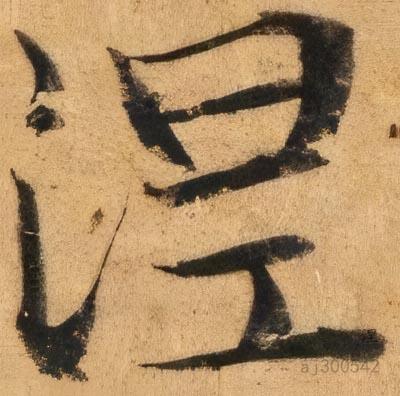 涅
aj300542